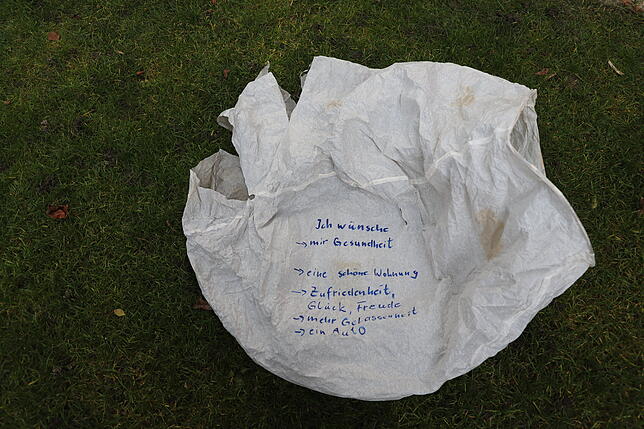 Ich wünsche
→ mir Gesundheit
→ eine schöne Wohnung
→ Zufriedenheit,
Glück, Freude
→ mehr Gelassenheit
→ ein Auto